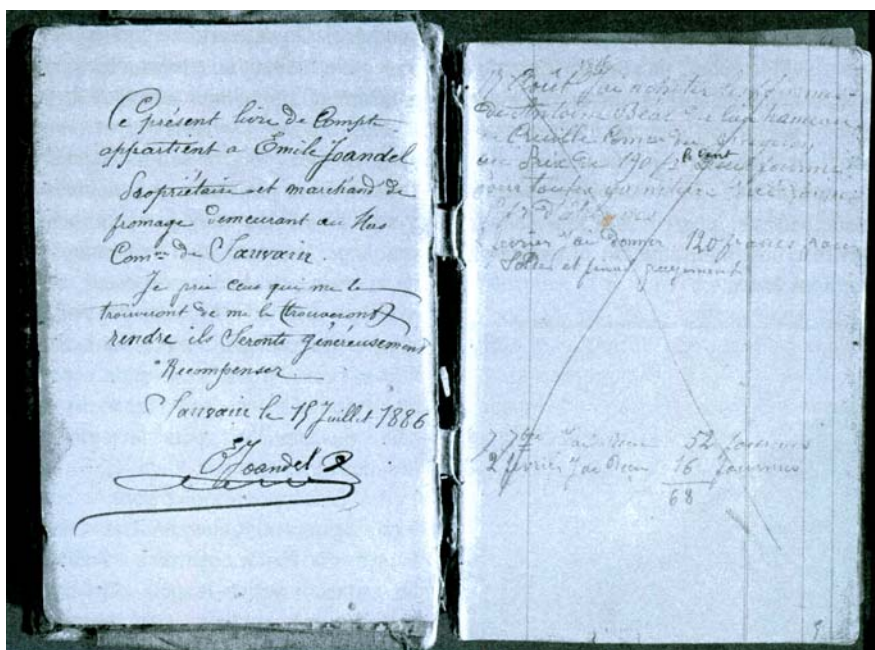 Ce présent livre de Compte
appartient a Emile Joandel
Propriétaire et marchand de
fromage demeurant au Mas
Com^ne de Sauvain
Je prie ceux qui me le
trouveront de me le (trouveront)
rendre ils Seronts généreusement
Recompenser
Sauvain le 15 Juillet 1886
E Joandel
Août J'ai acheter les fourmes
de Antoine Béal
au Prix de 190 f le cent
J'ai donner 120 francs pour
Soldes et final payement
7 7bre J'ai Recu 52 fourmes
2 février J'ai Recu 16 fourmes
68